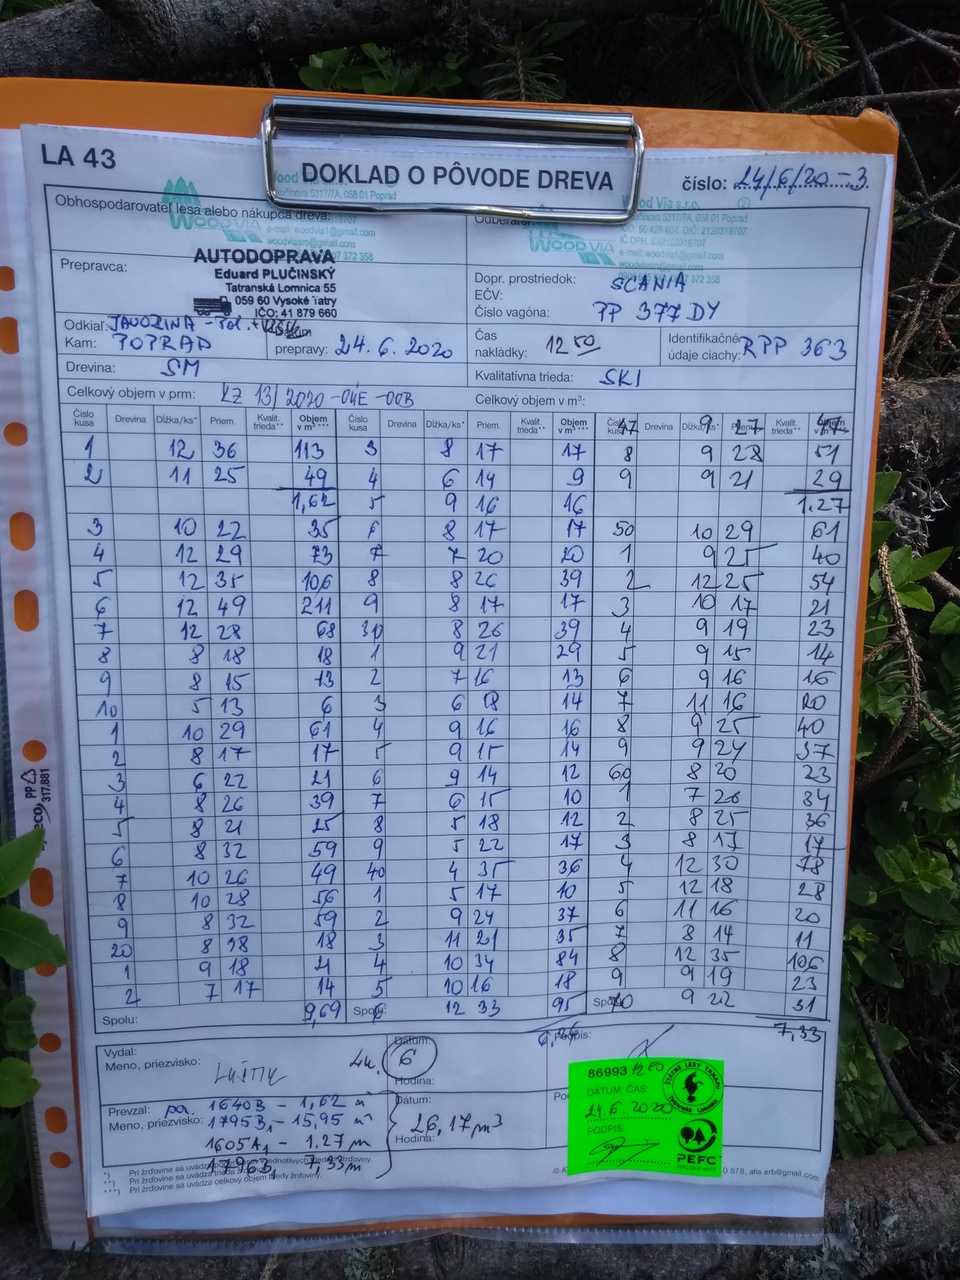 LA 43
DOKLAD O PÔVODE DREVA
číslo: 24/6/20-3
Obhospodarovateľ lesa alebo nákupca dreva:
WOOD VIA
e-mail: woodvia1@gmail.com
woodviasro@gmail.com
Wood Via s.r.o.
5317/7A, 058 01 Poprad
Prepravca:
AUTODOPRAVA
Eduard PLUČINSKÝ
Tatranská Lomnica 55
059 60 Vysoké Tatry
IČO: 41 879 660
Dopr. prostriedok: SCANIA
EČV:
Číslo vagóna: PP 377 DY
Odkiaľ: JAVORINA - Pol.
Kam: POPRAD
prepravy: 24.6.2020
Čas
nakládky: 12 50
Identifikačné
údaje ciachy: RPP 363
Drevina: SM
Kvalitatívna trieda: SKI
Celkový objem v prm: KZ 13/2020-04E-00B
Celkový objem v m³:
Číslo kusa Drevina Dĺžka/ks* Priem. Kvalit. trieda** Objem v m³*** Číslo kusa Drevina Dĺžka/ks* Priem. Kvalit. trieda** Objem v m³*** 47 9 27
1 12 36 113 3 8 17 17 8 9 28 51
2 11 25 49 4 6 14 9 9 9 21 29
1,62 5 9 16 16 1.27
3 10 22 35 6 8 17 17 50 10 29 61
4 12 29 73 7 7 20 20 1 9 25 40
5 12 35 106 8 8 26 39 2 12 25 54
6 12 49 211 9 8 17 17 3 10 17 21
7 12 28 68 30 8 26 39 4 9 19 23
8 8 18 18 1 9 21 29 5 9 15 14
9 8 15 13 2 7 16 13 6 9 16 16
10 5 13 6 3 6 18 14 7 11 16 20
1 10 29 61 4 9 16 16 8 9 25 40
2 8 17 17 5 9 15 14 9 9 24 37
3 6 22 21 6 9 14 12 60 8 20 23
4 8 26 39 7 6 15 10 1 7 26 34
5 8 21 25 8 5 18 12 2 8 25 36
6 8 32 59 9 5 22 17 3 8 17 17
7 10 26 49 40 4 35 36 4 12 30 78
8 10 28 56 1 5 17 10 5 12 18 28
9 8 32 59 2 9 24 37 6 11 16 20
20 8 18 18 3 11 21 35 7 8 14 11
1 9 18 21 4 10 34 84 8 12 35 106
2 7 17 14 5 10 16 18 9 9 19 23
Spolu: 9,69 6 12 33 95 70 9 22 31
7,33
Vydal:
Meno, priezvisko:
Dátum:
6
Hodina:
Podpis:
Prevzal:
Meno, priezvisko:
1640B - 1,62 m
1795B1 - 15,95 m
1605A1 - 1.27 m
Dátum:
26,17 m³
Hodina:
86993 12 50
ŠTÁTNE LESY TANAPU
TATRANSKÁ LOMNICA
DÁTUM, ČAS
24.6.2020
PODPIS
PEFC
*) Pri žrďovine sa uvádza
**) Pri žrďovine sa uvádza trieda žrďoviny.
***) Pri žrďovine sa uvádza celkový objem triedy žrďoviny.
PP
317.881
eco